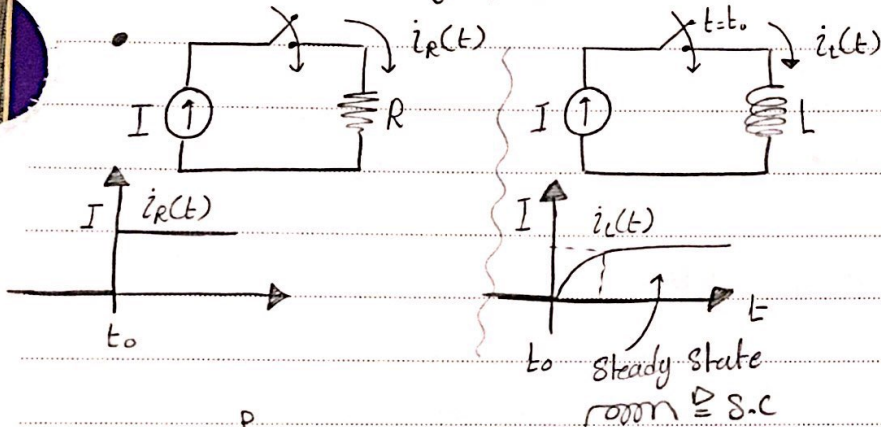 i_R(t)
I
R
I
i_R(t)
t₀
t=t₀
i_L(t)
I
L
I
i_L(t)
t
t₀
Steady State
≅ S.C